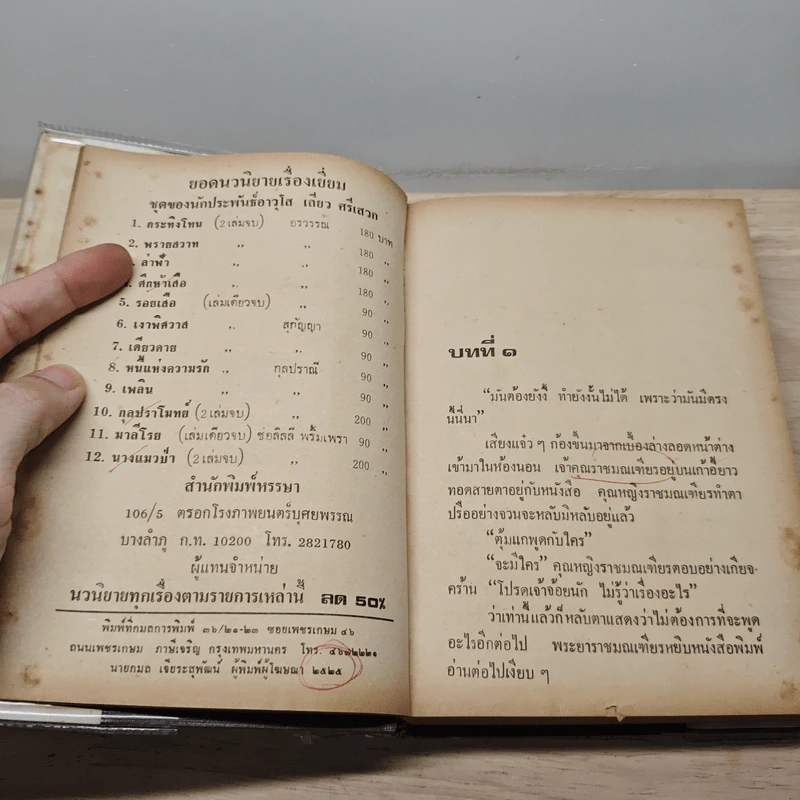 ยอดนวนิยายเรื่องเยี่ยม
ชุดของนักประพันธ์อาวุโส เลียว ศรีเสวก
1. กระทิงโทน (2 เล่มจบ) อรวรรณ 180 บาท
2. พรายสวาท ,, ,, 180 ,,
ล่าฟ้า ,, ,, 180 ,,
ศึกษาเสือ ,, ,, 180 ,,
5. รอยเสือ (เล่มเดียวจบ) ,, 90 ,,
6. เงาพิศวาส ,, สุกัญญา 90 ,,
7. เดียวดาย ,, ,, 90 ,,
8. หนี้แห่งความรัก ,, กุลปราณี 90 ,,
9. เพลิน ,, ,, 90 ,,
10. กุลปราโมทย์ (2 เล่มจบ) ,, 200 ,,
11. มาลีโรย (เล่มเดียวจบ) ช่อลิลลี่ พริ้มเพรา 90 ,,
12. นางแมวป่า (2 เล่มจบ) ,, 200 ,,
สำนักพิมพ์หรรษา
106/5 ตรอกโรงภาพยนตร์บุศยพรรณ
บางลำภู ก.ท. 10200 โทร. 2821780
ผู้แทนจำหน่าย
นวนิยายทุกเรื่องตามรายการเหล่านี้ ลด 50%
พิมพ์ที่กมลการพิมพ์ ๓๖/๒๑-๒๓ ซอยเพชรเกษม ๔๖
ถนนเพชรเกษม ภาษีเจริญ กรุงเทพมหานคร โทร. ๔๖๗๒๒๒๑
นายกมล เจียระสุพัฒน์ ผู้พิมพ์ผู้โฆษณา ๒๕๒๕
บทที่ ๑
“มันต้องยังงี้ ทำยังงั้นไม่ได้ เพราะว่ามันมีตรง
นี้นี่นา”
เสียงแจ๋ว ๆ ก้องขึ้นมาจากเบื้องล่างลอดหน้าต่าง
เข้ามาในห้องนอน เจ้าคุณราชมณเฑียรอยู่บนเก้าอี้ยาว
ทอดสายตาอยู่กับหนังสือ คุณหญิงราชมณเฑียรทำตา
ปรืออย่างจวนจะหลับมิหลับอยู่แล้ว
“ตุ้มแกพูดกับใคร”
“จะมีใคร” คุณหญิงราชมณเฑียรตอบอย่างเกียจ-
คร้าน “โปรดเจ้าจ้อยนัก ไม่รู้ว่าเรื่องอะไร”
ว่าเท่านี้แล้วก็หลับตาแสดงว่าไม่ต้องการที่จะพูด
อะไรอีกต่อไป พระยาราชมณเฑียรหยิบหนังสือพิมพ์
อ่านต่อไปเงียบ ๆ